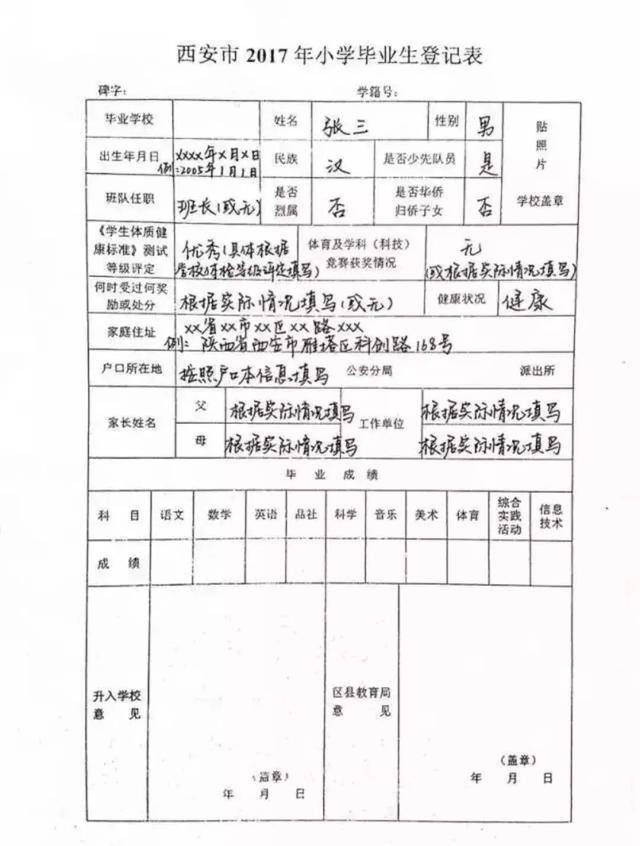 西安市2017年小学毕业生登记表
碑字: 学籍号:
毕业学校 姓名 张三 性别 男 贴照片
出生年月日 xxxx年x月x日
例:2005年1月1日
民族 汉 是否少先队员 是
班队任职 班长(或无) 是否烈属 否 是否华侨归侨子女 否 学校盖章
《学生体质健康标准》测试等级评定 优秀(具体根据学校体检等级评定填写) 体育及学科(科技)竞赛获奖情况 无(或根据实际情况填写)
何时受过何奖励或处分 根据实际情况填写(或无) 健康状况 健康
家庭住址 xx省xx市xx区xx路xxx
例:陕西省西安市雁塔区科创路168号
户口所在地 按照户口本信息填写 公安分局 派出所
家长姓名 父 根据实际情况填写 工作单位 根据实际情况填写
母 根据实际情况填写 根据实际情况填写
毕业成绩
科目 语文 数学 英语 品社 科学 音乐 美术 体育 综合实践活动 信息技术
成绩
升入学校意见 (盖章)
年 月 日
区县教育局意见 (盖章)
年 月 日